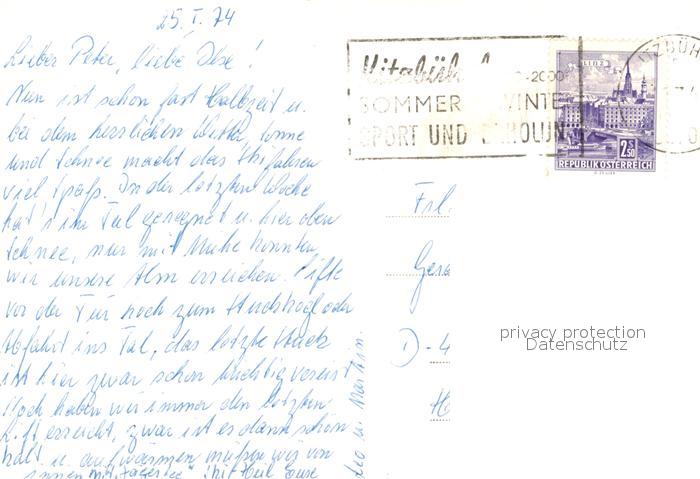 25. I. 74
Lieber Peter, liebe Ilse!
Nun ist schon fast Halbzeit u.
bei dem herrlichen Wetter, Sonne
und Schnee macht das Skifahren
viel Spaß. In der letzten Woche
hat's im Tal geregnet u. hier oben
Schnee, nur mit Mühe konnten
wir unsere Alm erreichen. Lifte
vor der Tür noch zum oder
Abfahrt ins Tal, das letzte Stück
ist hier zwar schon vereist
Doch haben wir immer den letzten
Lift erreicht, zwar ist es dann schon
kalt u. aufwärmen müssen wir von
innen mit "Jagertee" Ski Heil Eure
Leo u.
Kitzbühel -2000
SOMMER WINTER
SPORT UND ERHOLUNG
KITZBÜH
LINZ
2.50
S
REPUBLIK ÖSTERREICH
Frl.
Gera
D-4
H
privacy protection
Datenschutz